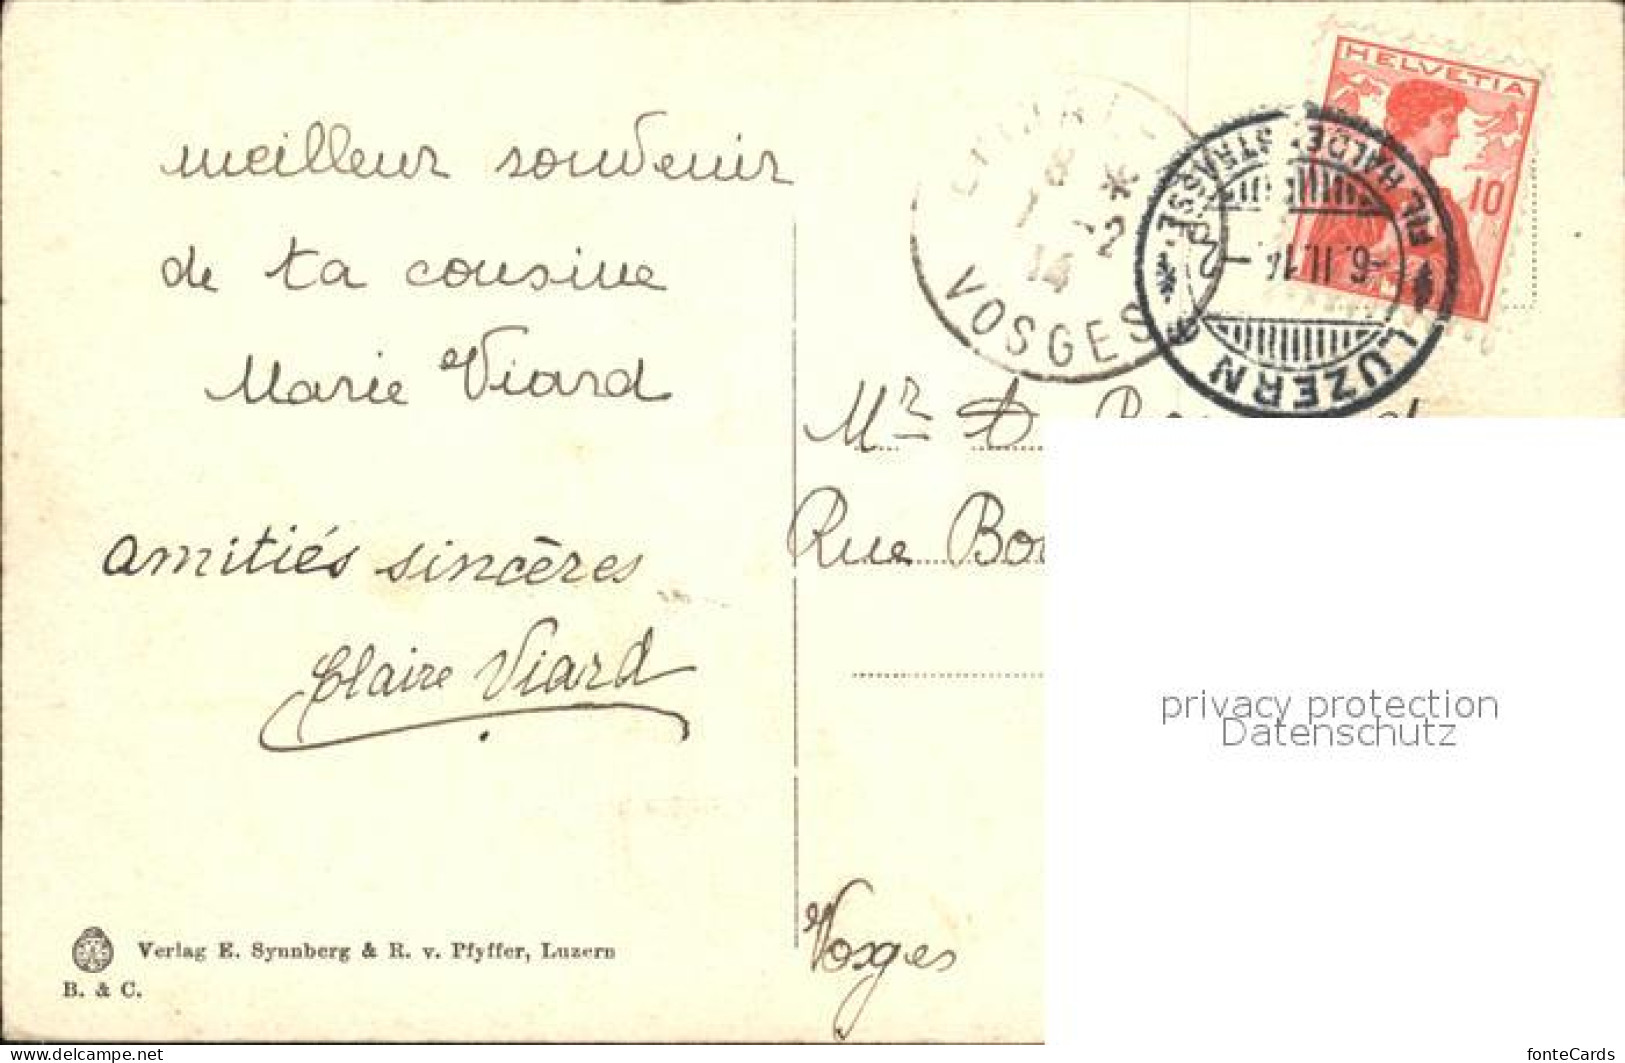 meilleur souvenir
de ta cousine
Marie Viard
amitiés sincères
Claire Viard
Verlag E. Synnberg & R. v. Pfyffer, Luzern
B. & C.
HELVETIA
10
LUZERN
FIL. HALDENSTRASSE
-6.II.14
VOSGES
Mr
Rue
Vosges
privacy protection
Datenschutz
www.delcampe.net
fonteCards